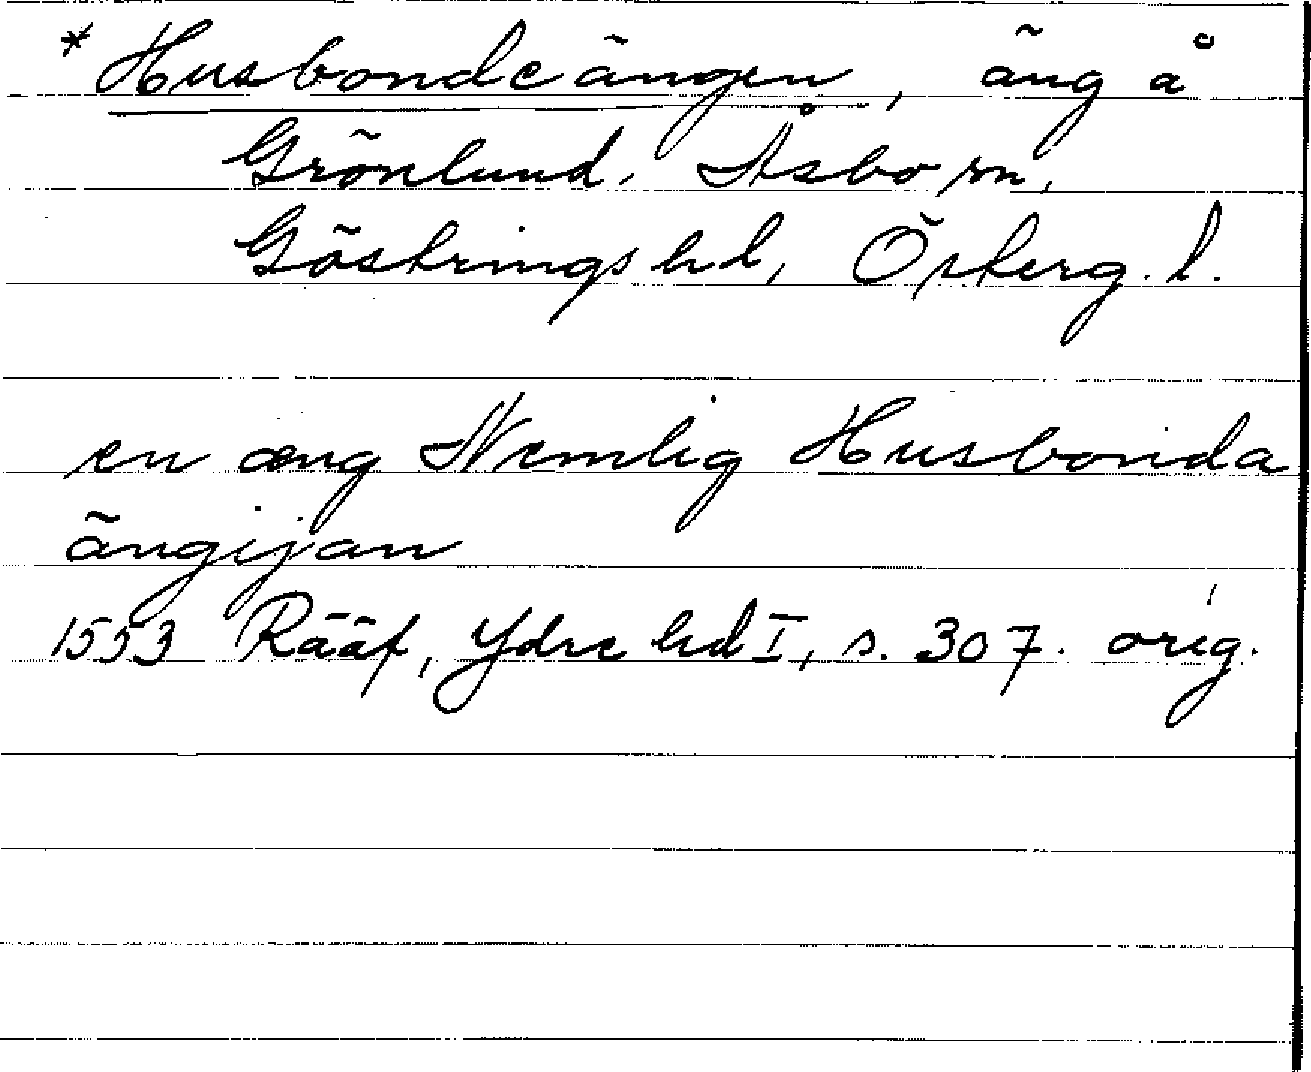 * Husbondeängen, äng å
Grönlund, Åsbo sn,
Göstrings hd, Österg. l.
en æng Nemlig Husbonda
ängijan
1553 Rääf, Ydre hd I, s. 307. orig.